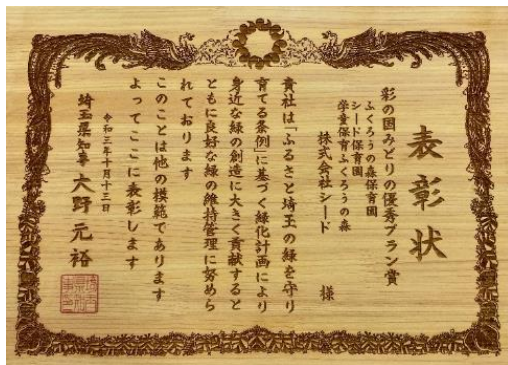 表彰状
彩の国みどりの優秀プラン賞
ふくろうの森保育園
シード保育園
学童保育ふくろうの森
株式会社シード
様
貴社は「ふるさと埼玉の緑を守り
育てる条例」に基づく緑化計画により
身近な緑の創造に大きく貢献すると
ともに良好な緑の維持管理に努めら
れております
このことは他の模範であります
よってここに表彰します
令和三年十月十三日
埼玉県知事 大野元裕